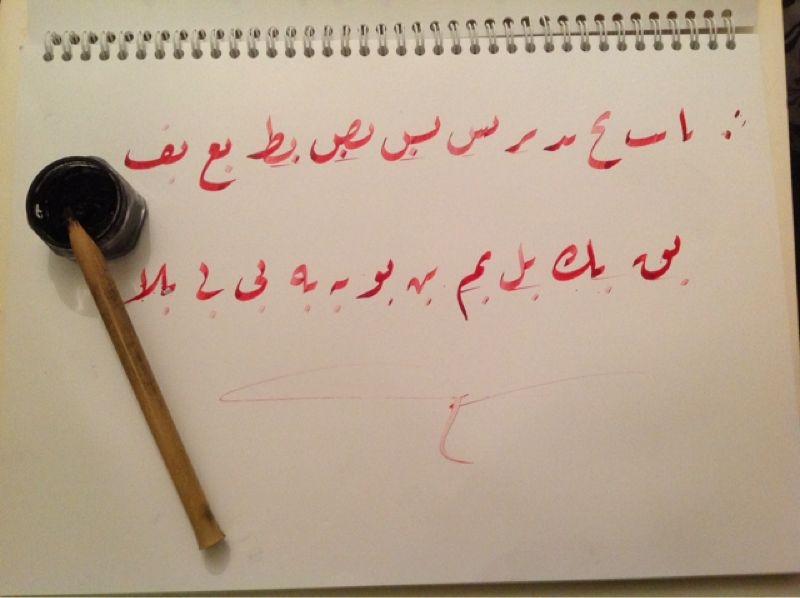 با بب بج بد بر بس بس بص بط بع بف
بق بك بل بم بن بو به به بى بى بلا